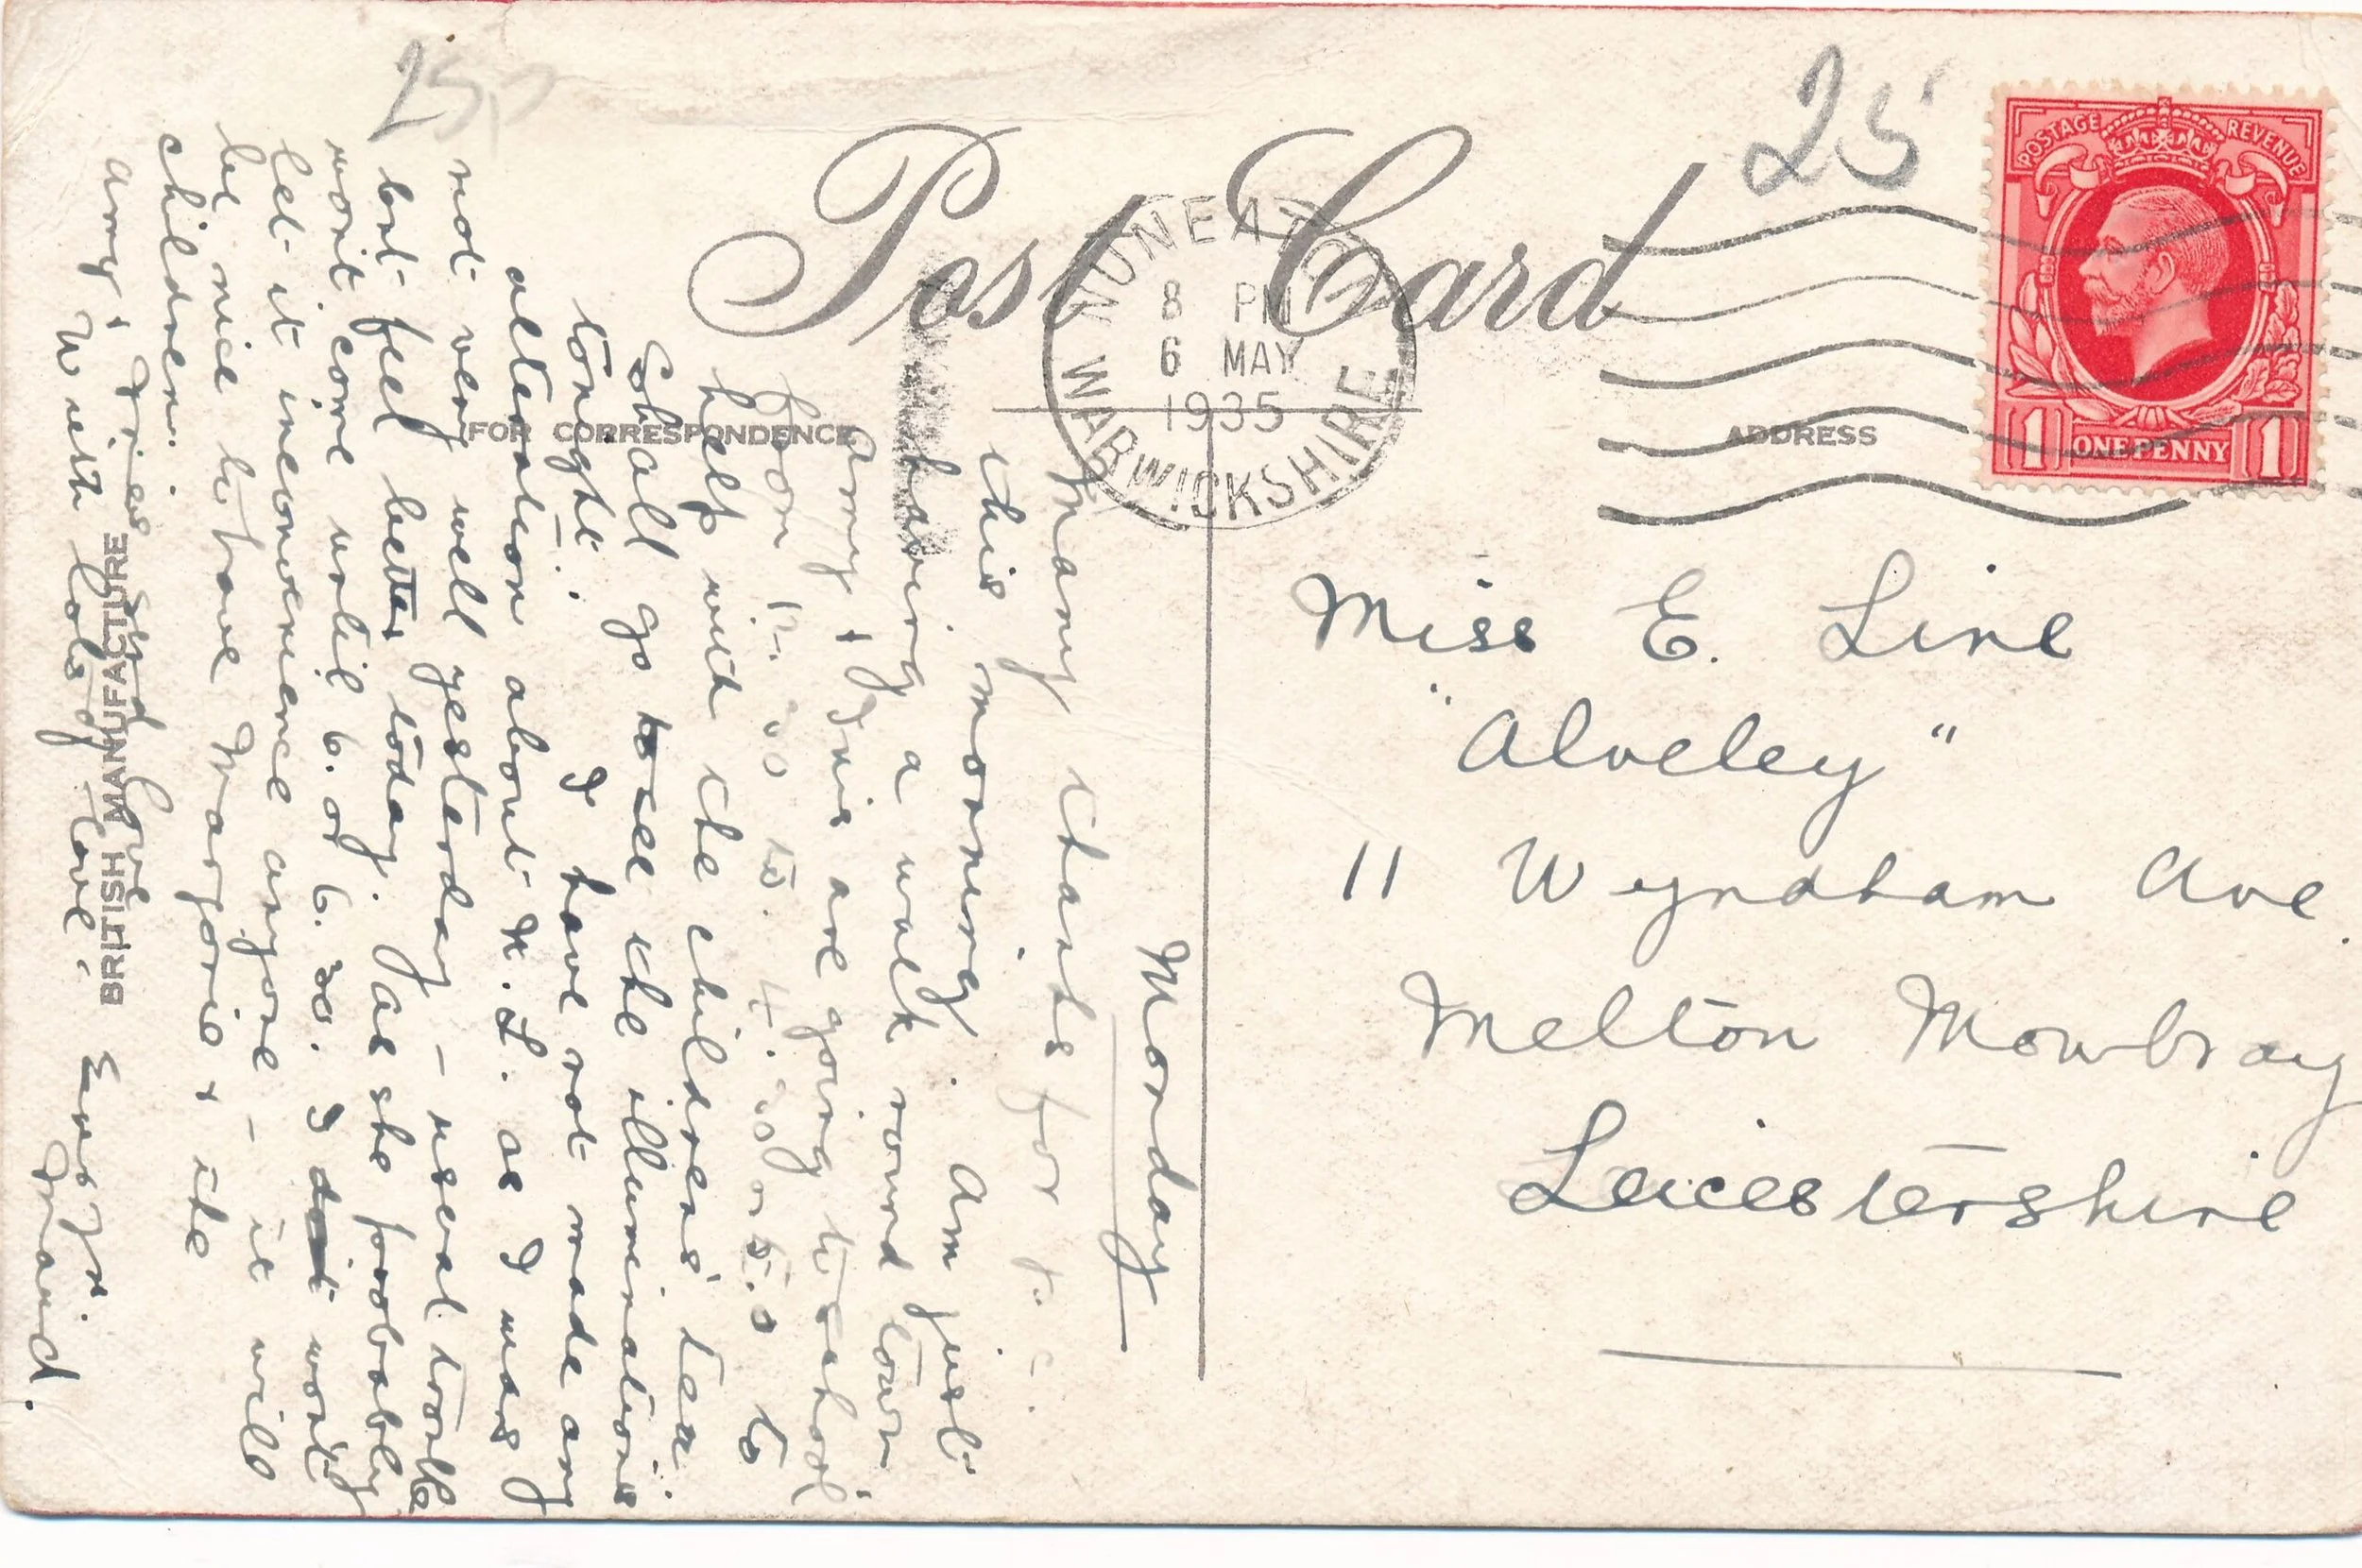 25
25
Post Card
POSTAGE REVENUE
1 ONE PENNY 1
NUNEATON
8 PM
6 MAY
1935
WARWICKSHIRE
FOR CORRESPONDENCE
ADDRESS
BRITISH MANUFACTURE
Monday
Many thanks for p.c.
this morning. Am just
having a walk round town
Amy + Ivis are going to school
from 12.30 to 4.30 to
help with the childrens' tea.
Shall go to see the illuminations
tonight. I have not made any
alteration about N.L. as I was
not very well yesterday – usual trouble
but feel better today. Jas she probably
won't come until 6. or 6.30. I don't want
let it inconvenience anyone – it will
be nice to have Marjorie + the
children.
Amy + Ivis send love
With lots of love, Ever yr.
Maud.
Miss E. Line
"Alveley"
11 Wyndham Ave.
Melton Mowbray
Leicestershire